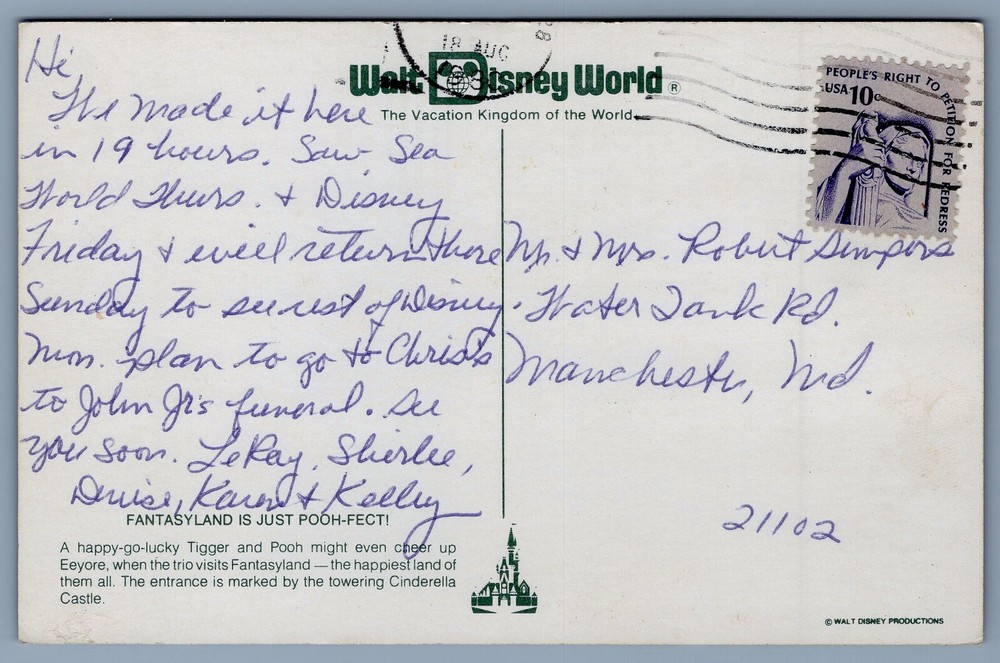 Hi,
We made it here
in 19 hours. Saw Sea
World Thurs. & Disney
Friday & will return there
Sunday to see rest of Disney.
Mon. plan to go to Chris's
to John Jr's funeral. See
you soon. LeRay, Shirlee,
Denise, Karen & Kelley
FANTASYLAND IS JUST POOH-FECT!
A happy-go-lucky Tigger and Pooh might even cheer up
Eeyore, when the trio visits Fantasyland — the happiest land of
them all. The entrance is marked by the towering Cinderella
Castle.
Walt Disney World ®
The Vacation Kingdom of the World
18 AUG
PEOPLE'S RIGHT TO PETITION FOR REDRESS
USA 10c
Mr. & Mrs. Robert
Water Tank Rd.
Manchester, Md.
21102
© WALT DISNEY PRODUCTIONS